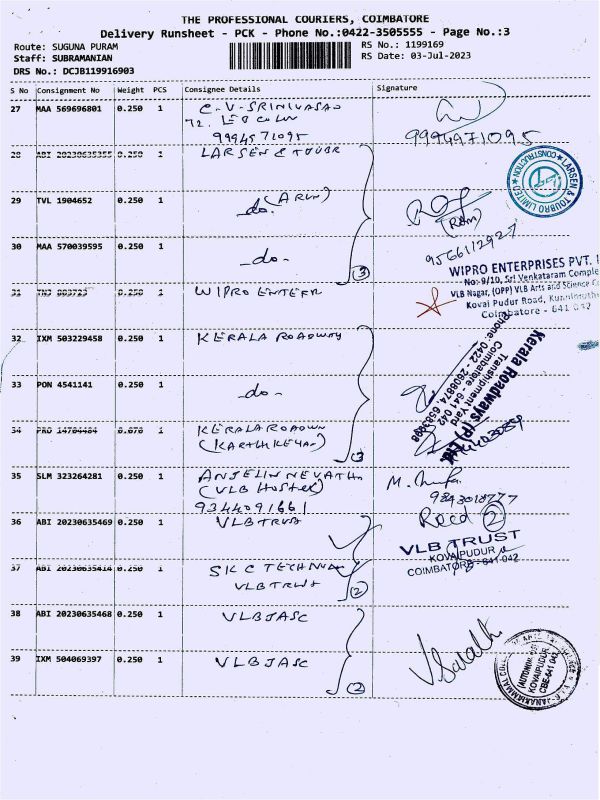 THE PROFESSIONAL COURIERS, COIMBATORE
Delivery Runsheet - PCK - Phone No.:0422-3505555 - Page No.:3
Route: SUGUNA PURAM
RS No.: 1199169
Staff: SUBRAMANIAN
RS Date: 03-Jul-2023
DRS No.: DCJB119916903
S No Consignment No Weight PCS Consignee Details Signature
27 MAA 569696801 0.250 1 C.V-SRINIVASAN
72. LEO COLON
9994571095
9994971095
28 ABI 20230635355 0.250 1 LARSEN & TOUBR
LARSEN & TOUBRO LIMITED
CONSTRUCTION
29 TVL 1904652 0.250 1 -do- (ARUN)
(RAM)
9566112927
30 MAA 570039595 0.250 1 -do-
3
WIPRO ENTERPRISES PVT.
No:-9/10, Sri Venkataram Comple
VLB Nagar, (OPP) VLB Arts and Science C
Kovai Pudur Road,
Coimbatore - 641 042
31 0.250 1 WIPRO ENTERR
32 IXM 503229458 0.250 1 KERALA ROADWAY
Kerala Roadways (P) Ltd.
Transhipment Yard
Coimbatore - 641 042
Phone: 0422 - 2608874, 6583998
33 PON 4541141 0.250 1 -do-
34 PRO 14704484 0.670 1 KERALA ROADW
(KARTHIKEYAN)
3
35 SLM 323264281 0.250 1 ANJELIN NEVATHA
(VLB HOSTEL)
9344091661
M.
9843018777
36 ABI 20230635469 0.250 1 VLB TRUST
Recd 2
VLB TRUST
KOVAIPUDUR
COIMBATORE - 641 042
37 ABI 20230635414 0.250 1 SKC TECHNO
VLB TRUST
2
38 ABI 20230635468 0.250 1 VLBJASC
39 IXM 504069397 0.250 1 VLBJASC
2
V Sarath
(AUTONOMOUS)
KOVAIPUDUR
CBE-641 042